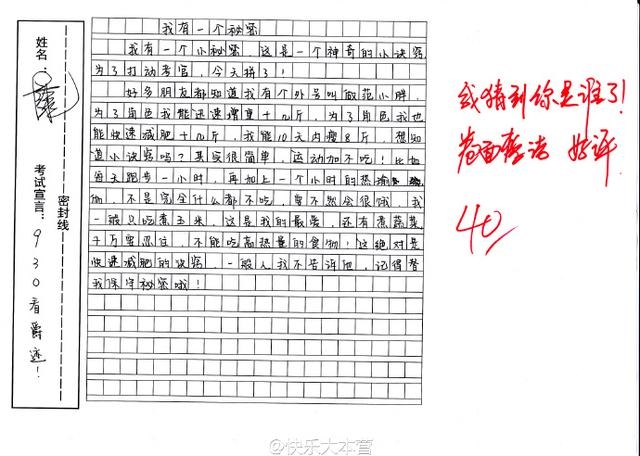 姓名：
考试宣言：930看爵迹！
密封线
我有一个秘密
我有一个小秘密，这是一个神奇的小诀窍，
为了打动考官，今天拼了！
好多朋友都知道我有个外号叫做范小胖，
为了角色我能迅速增重十几斤，为了角色我也
能快速减肥十几斤，我能10天内瘦8斤，想知
道小诀窍吗？其实很简单，运动加不吃！比如
每天跑步一小时，再加上一个小时的热瑜
伽，不是完全什么都不吃，要不然会很饿，我
一般只吃煮玉米，这是我的最爱，还有煮蔬菜，
千万要忍住，不能吃高热量的食物！这绝对是
快速减肥的诀窍，一般人我不告诉他，记得替
我保守秘密哦！
我猜到你是谁了！
卷面整洁 好评
40
@快乐大本营